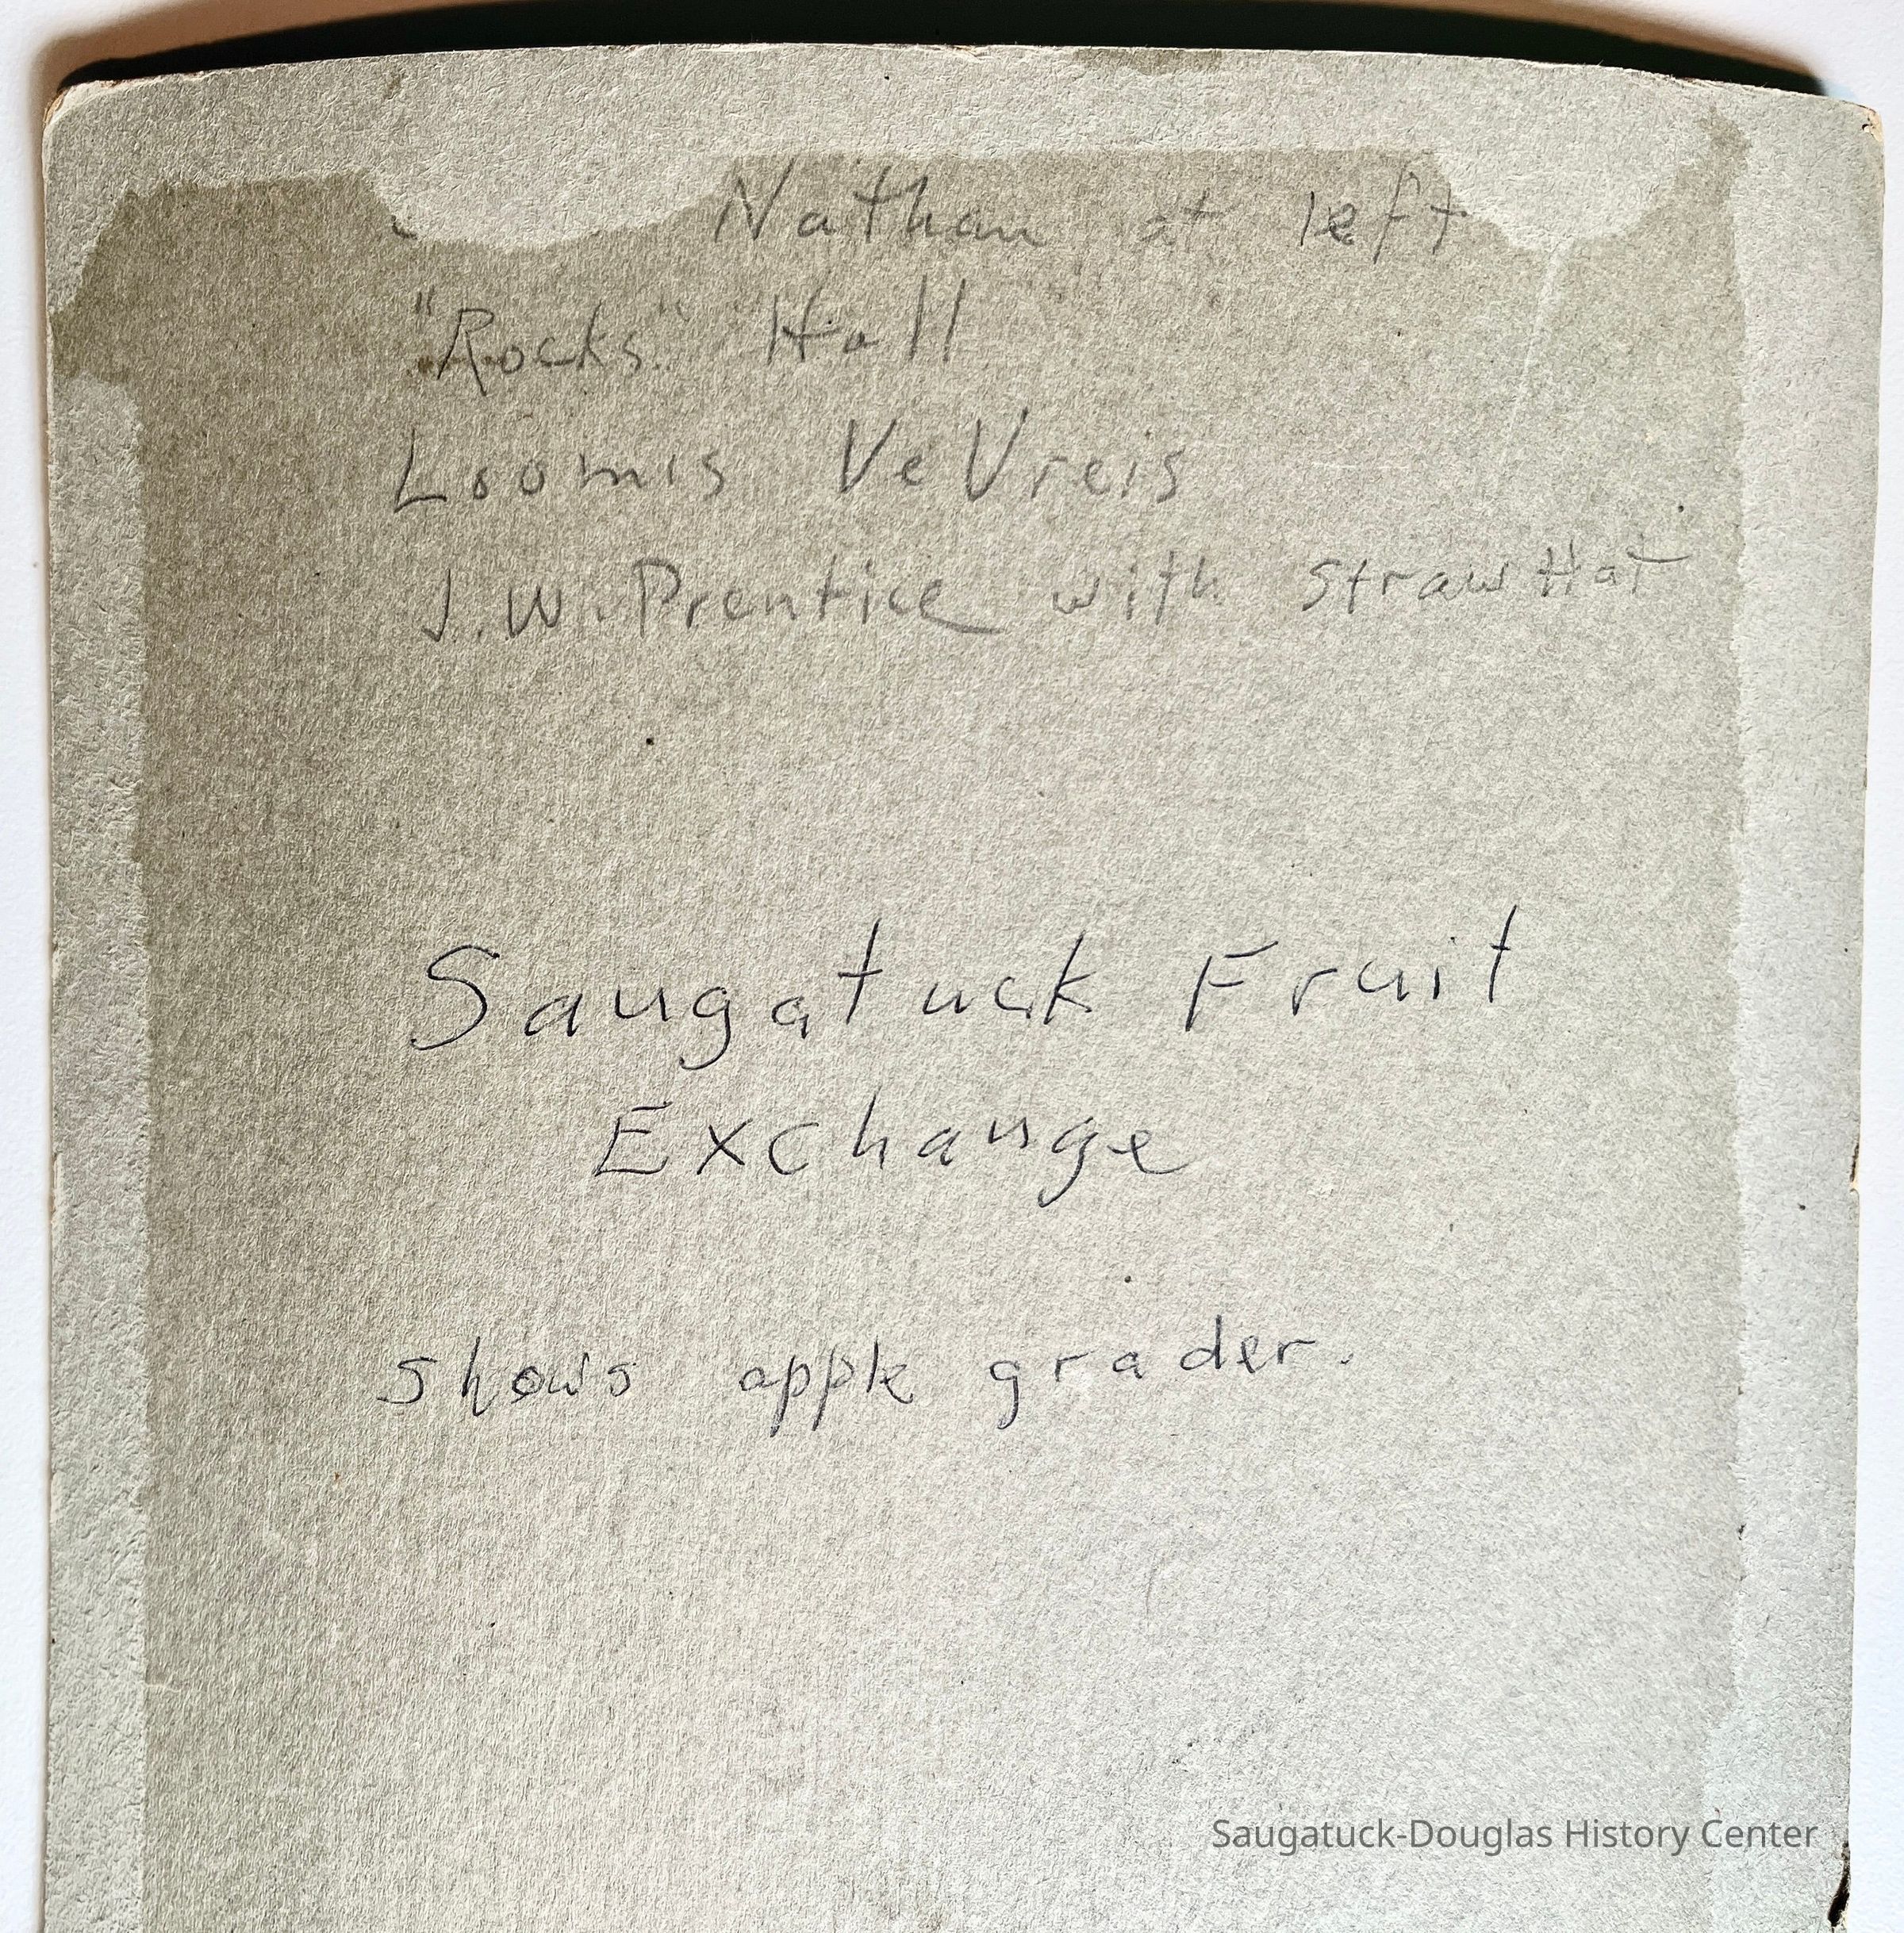 Nathan at left
"Rocks" Hall
Loomis VeVreis
J.W. Prentice with straw Hat
Saugatuck Fruit
Exchange
shows apple grader.
Saugatuck-Douglas History Center